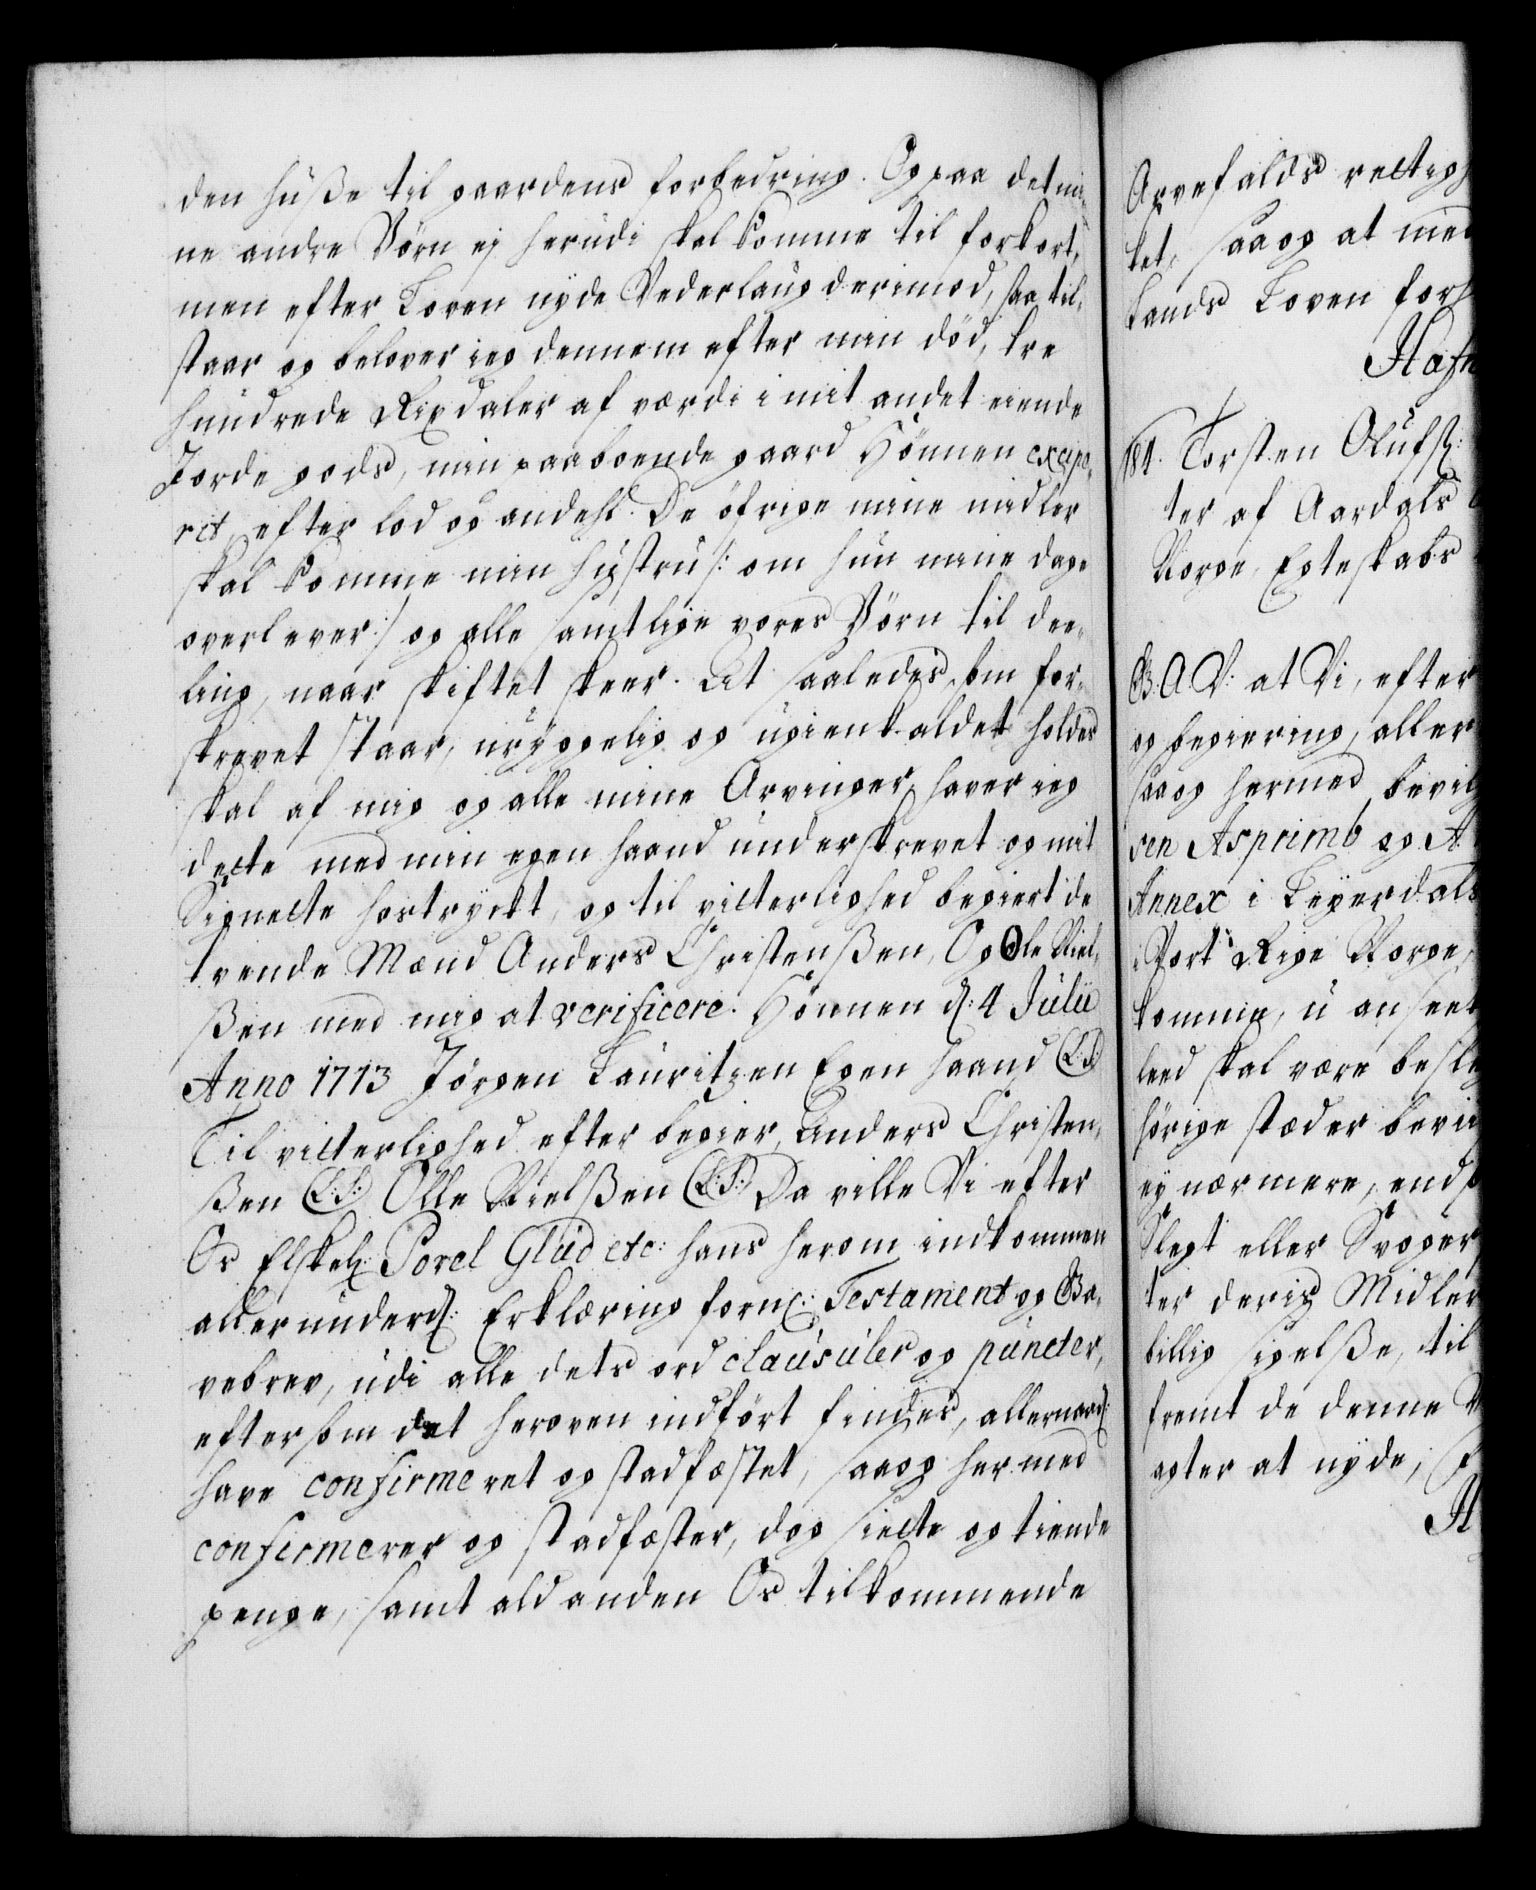 den huße til gaardens forbedring. Og paa det mi-
ne andre Börn ej herudi skal komme til forkort,
men efter Loven nyde Vederlaug derimod, saa til-
staar og belover ieg dennem efter min död, tre
hundrede Rixdaler af værdi i mit andet eiende
Jorde gods, min paaboende gaard Hönnen excipe-
ret, efter lod og andehl. De öfrige mine midler
skal komme min hustru /: om hun mine dage
overlever :/ og alle samtlige vores Börn til dee-
ling, naar skiftet skeer. At saaledis, som for-
skrevet staar, uryggelig og ugienkaldet holdes
skal af mig og alle mine Arvinger, haver ieg
dette med min egen haand underskrevet og mit
Signette hostryckt, og til vitterlighed begiert de
tvende Mænd Anders Christenßen, Og Ole Niel-
ßen med mig at verificere. Hönnen d: 4 Julii
Anno 1713 Jörgen Lauritzen Egen haand (L.S.)
Til vitterlighed efter begier, Anders Christen-
ßen (L:S:) Olle Nielßen (L:S:) Da ville Vi efter
Os Elskel: Povel Glud etc: hans herom indkommen
allerunderd: Erklæring fornd: Testament og Ga-
vebrev, udi alle dets ord clausuler og puncter,
eftersom det heroven indfört findes, allernaad:
have confirmeret og stadfæstet, saa og hermed
confirmerer og stadfæster, dog siette og tiende
penge, samt ald anden Os tilkommende
Arvefalds rettig
tet, saa og at med
Lands Loven forh
Hafn
181. Torsten Olufs:
ter af Aardals
Norge, Egteskabs
G. A. V: at Vi, efter
og begiering, aller
saa og hermed bevilg
sen Asprimb og A
Annex i Leyerdals
i Vort Rige Norge,
komme, u anseet
leed skal være besleg
hörige stæder bevii
ey nærmere, end
Slegt eller Svoger
ter deris Midler
billig sigelße, til
fremt de denne
agter at nyde,
H